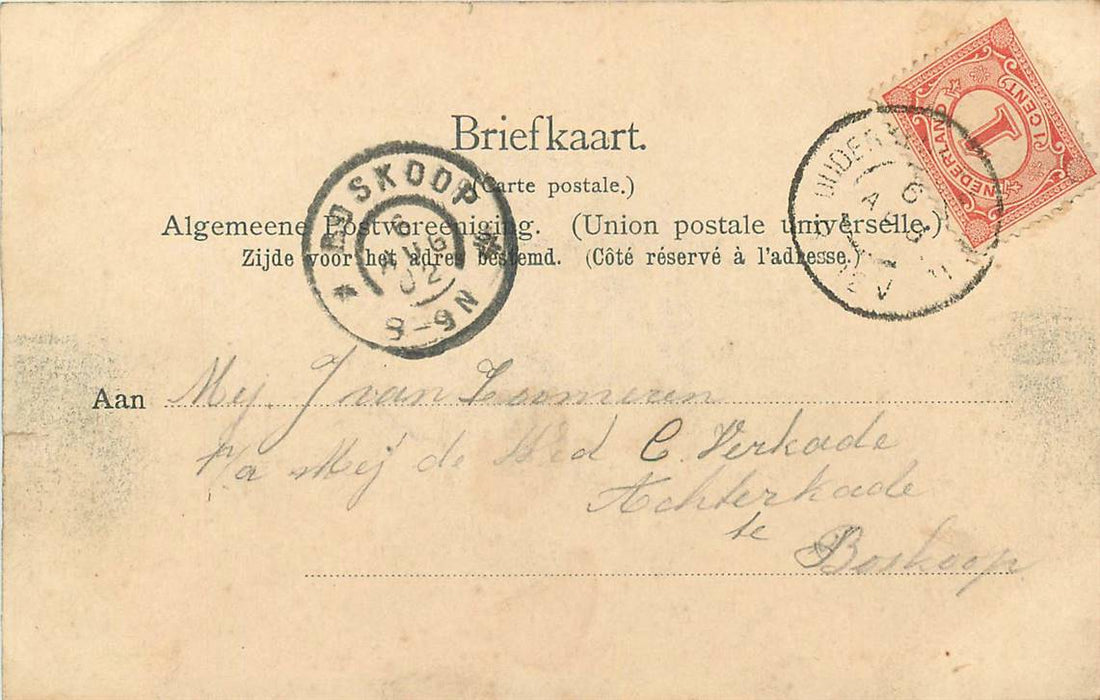 NEDERLAND
1
1 CENT
Briefkaart.
(Carte postale.)
Algemeene Postvereeniging. (Union postale universelle.)
Zijde voor het adres bestemd. (Côté réservé à l'adresse.)
BOSKOOP
6
AUG
02
8-9N
OUDER
6
Aan Mej. J van Loomeren
p/a Mej de Wed C. Verkade
Achterkade
te
Boskoop